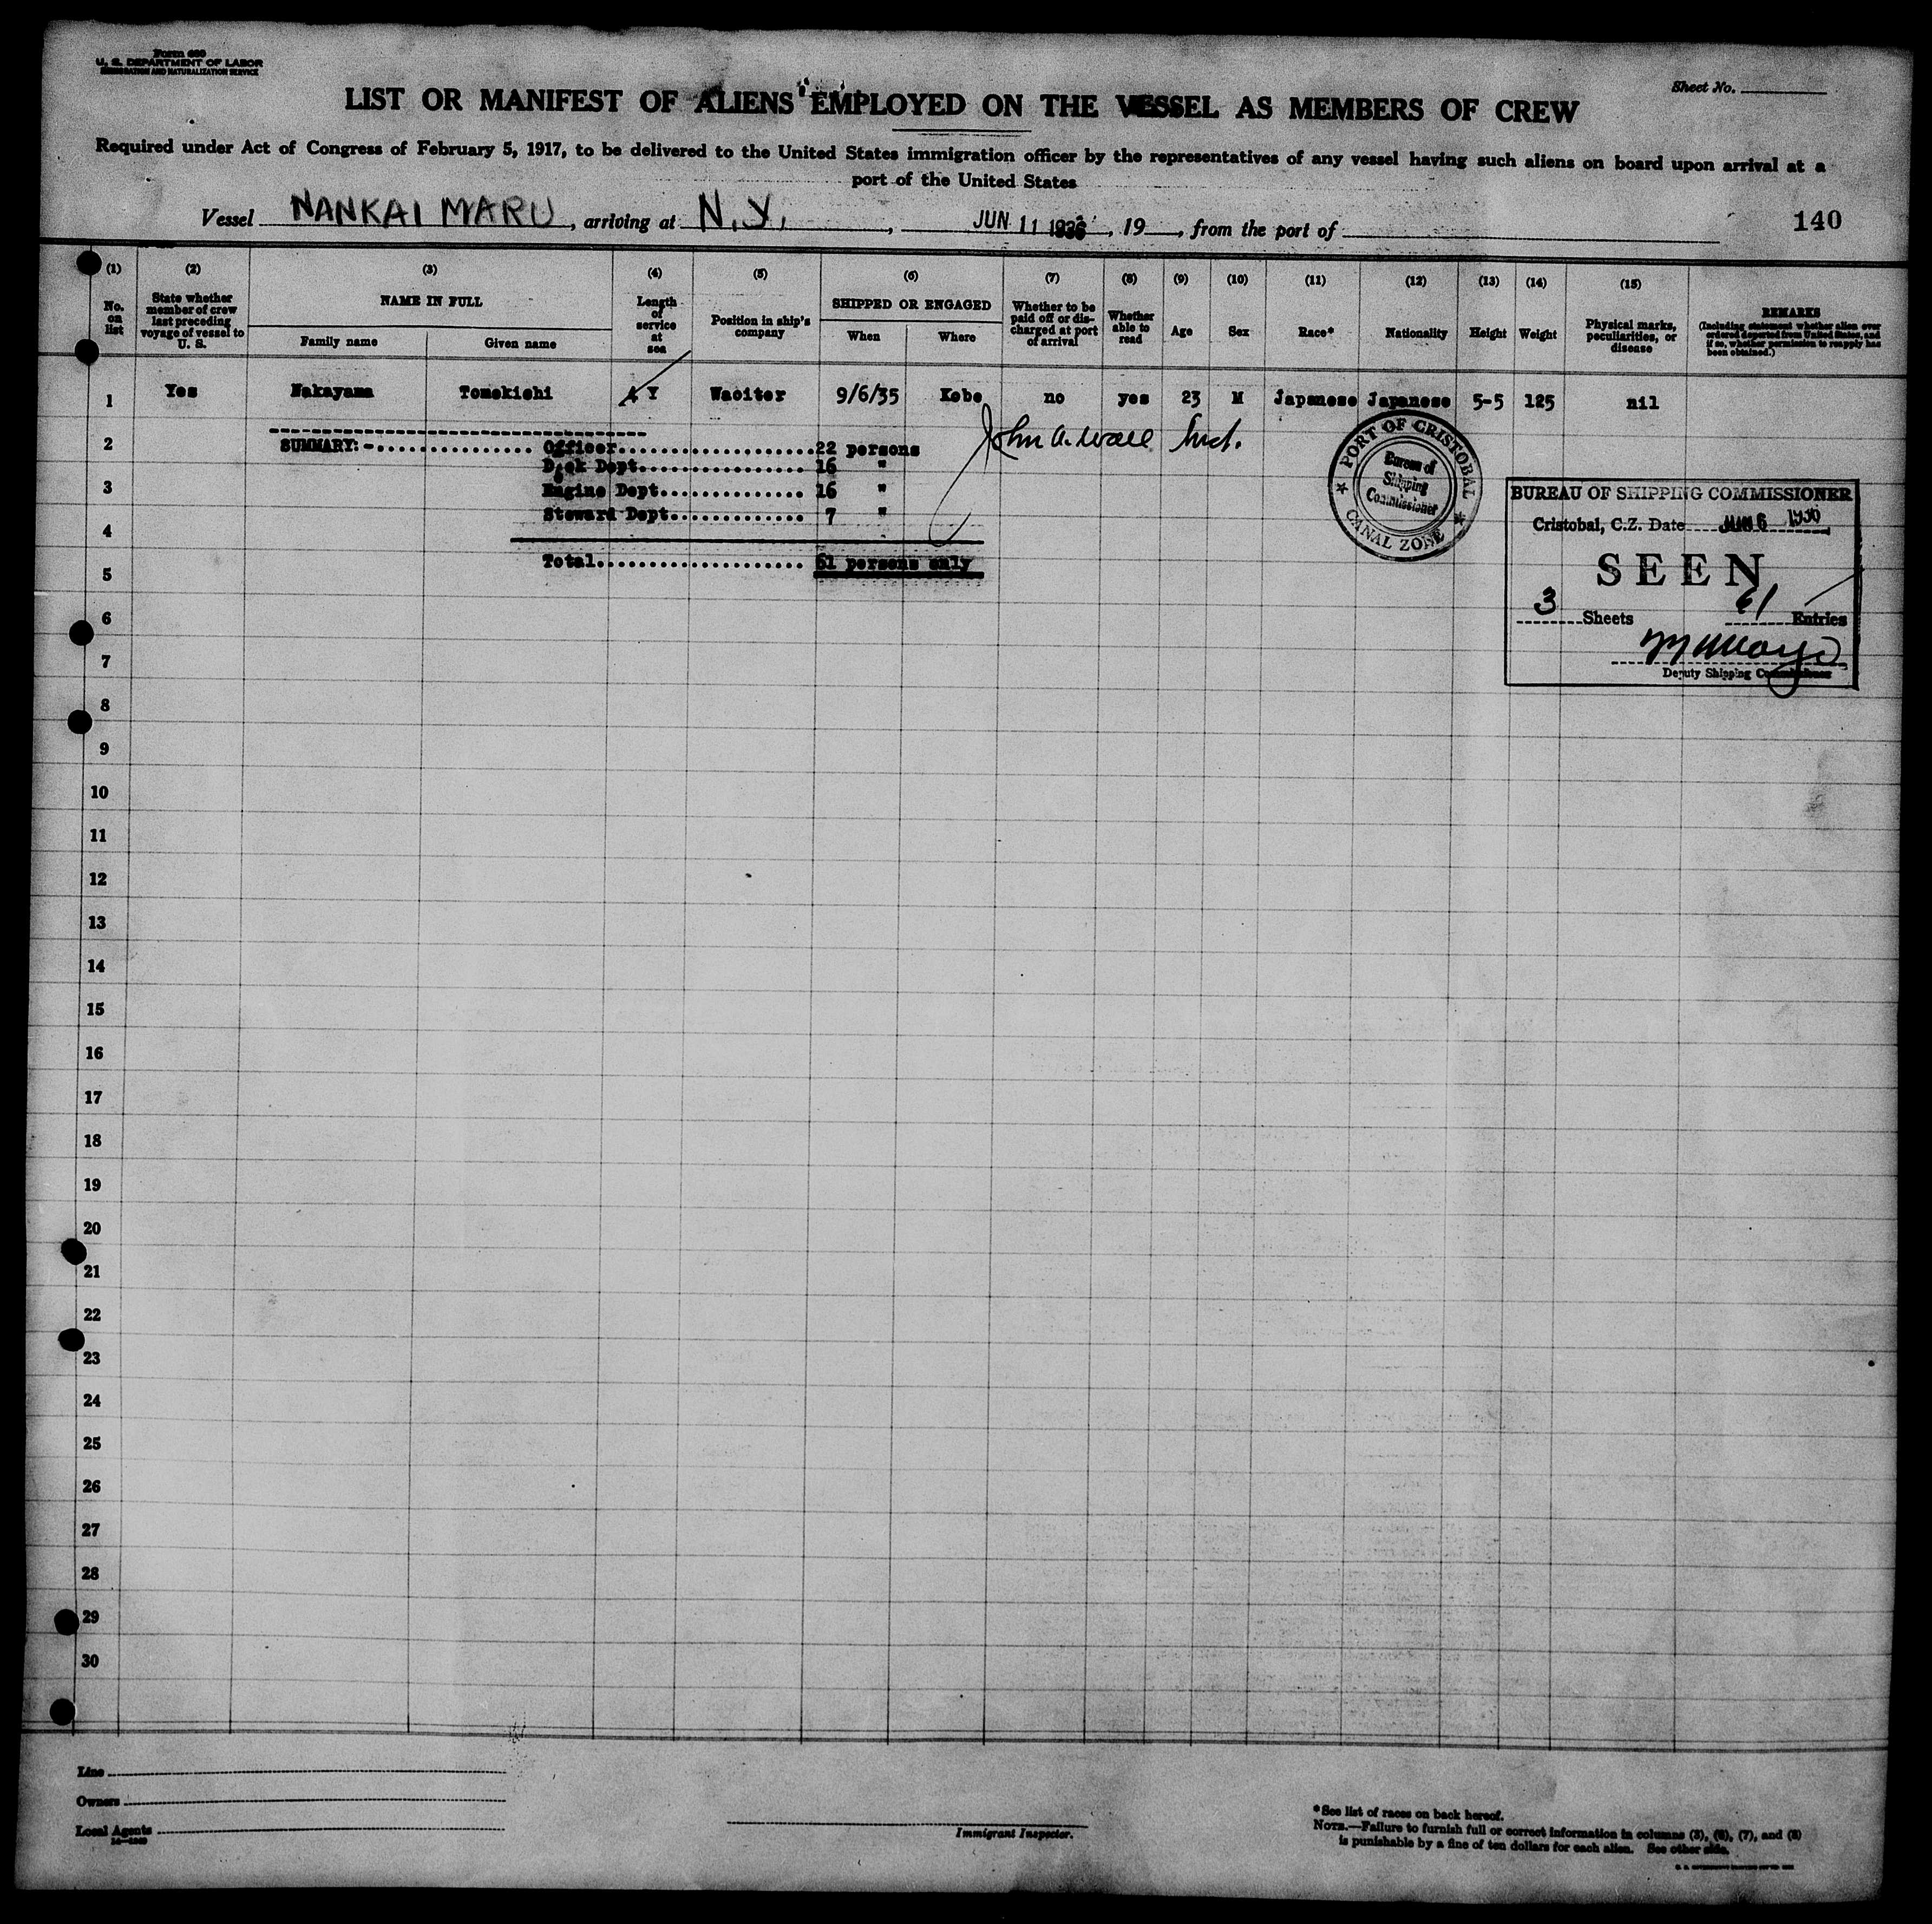 Form 680
U. S. DEPARTMENT OF LABOR
IMMIGRATION AND NATURALIZATION SERVICE
Sheet No.
LIST OR MANIFEST OF ALIENS EMPLOYED ON THE VESSEL AS MEMBERS OF CREW
Required under Act of Congress of February 5, 1917, to be delivered to the United States immigration officer by the representatives of any vessel having such aliens on board upon arrival at a
port of the United States
Vessel NANKAI MARU, arriving at N.Y., JUN 11 1936, 19 , from the port of
140
(1) (2) (3) (4) (5) (6) (7) (8) (9) (10) (11) (12) (13) (14) (15)
No. on list
State whether member of crew last preceding voyage of vessel to U. S.
NAME IN FULL
Family name
Given name
Length of service at sea
Position in ship's company
SHIPPED OR ENGAGED
When
Where
Whether to be paid off or discharged at port of arrival
Whether able to read
Age
Sex
Race*
Nationality
Height
Weight
Physical marks, peculiarities, or disease
REMARKS
(Including statement whether alien ever ordered deported from United States, and if so, whether permission to reapply has been obtained.)
1 Yes Nakayama Tomekichi 4 Y Waoiter 9/6/35 Kobe no yes 23 M Japanese Japanese 5-5 125 nil
John A. Wall Insp.
2 SUMMARY:-............... Officer....................22 persons
Deck Dept................. 16 "
3 Engine Dept.............. 16 "
Steward Dept............. 7 "
4
5 Total..................... 61 persons only
PORT OF CRISTOBAL
Bureau of
Shipping
Commissioner
CANAL ZONE
BUREAU OF SHIPPING COMMISSIONER
Cristobal, C.Z. Date JUN 6 1936
SEEN
3 Sheets 61 Entries
Deputy Shipping Commissioner
6
7
8
9
10
11
12
13
14
15
16
17
18
19
20
21
22
23
24
25
26
27
28
29
30
Line
Owners
Local Agents
Immigrant Inspector.
*See list of races on back hereof.
NOTE.—Failure to furnish full or correct information in columns (3), (6), (7), and (8)
is punishable by a fine of ten dollars for each alien. See other side.